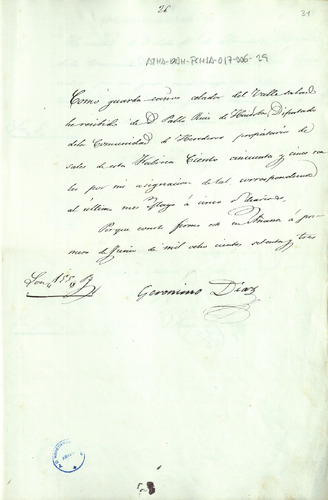 26
31
Como guarda celador del Valle salado
he recibido de D. Pablo Ruiz de Huidobro Diputado
de la Comunidad de Herederos propietarios de
sales de esta Ciento cincuenta y cinco rea
les por mi asignacion de tal, correspondiente
al ultimo mes Mayo á cinco r. diarios.
Porque conste firmo esta en Añana á pri
mero de Junio de mil ocho cientos setenta y tres
Son 155
Geronimo Diaz